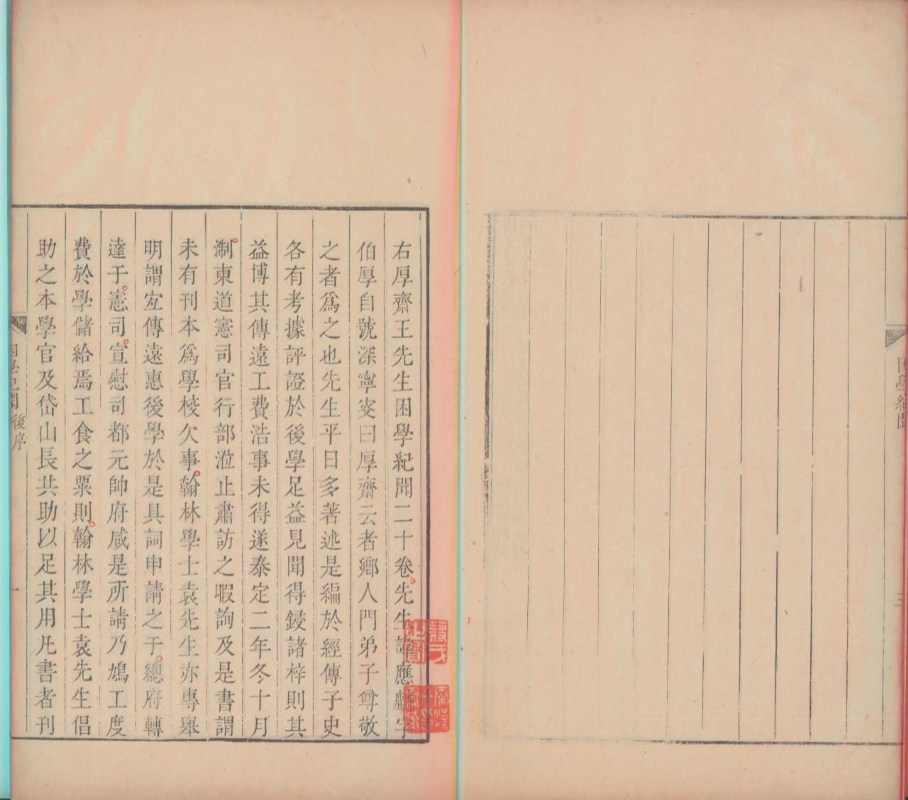 右厚齋王先生困學紀聞二十卷先生諱應麟字
伯厚自號深寧叟曰厚齋云者鄉人門弟子尊敬
之者爲之也先生平日多著述是編於經傳子史
各有考據評證於後學足益見聞得鋟諸梓則其
益博其傳遠工費浩事未得遂泰定二年冬十月
淛東道憲司官行部涖止肅訪之暇詢及是書謂
未有刊本爲學校欠事翰林學士袁先生亦專舉
明謂宐傳遠惠後學於是具詞申請之于總府轉
達于憲司宣慰司都元帥府咸是所請乃鳩工度
費於學儲給焉工食之粟則翰林學士袁先生倡
助之本學官及岱山長共助以足其用凡書者刊
困學紀聞 後序
一
困學紀聞
三